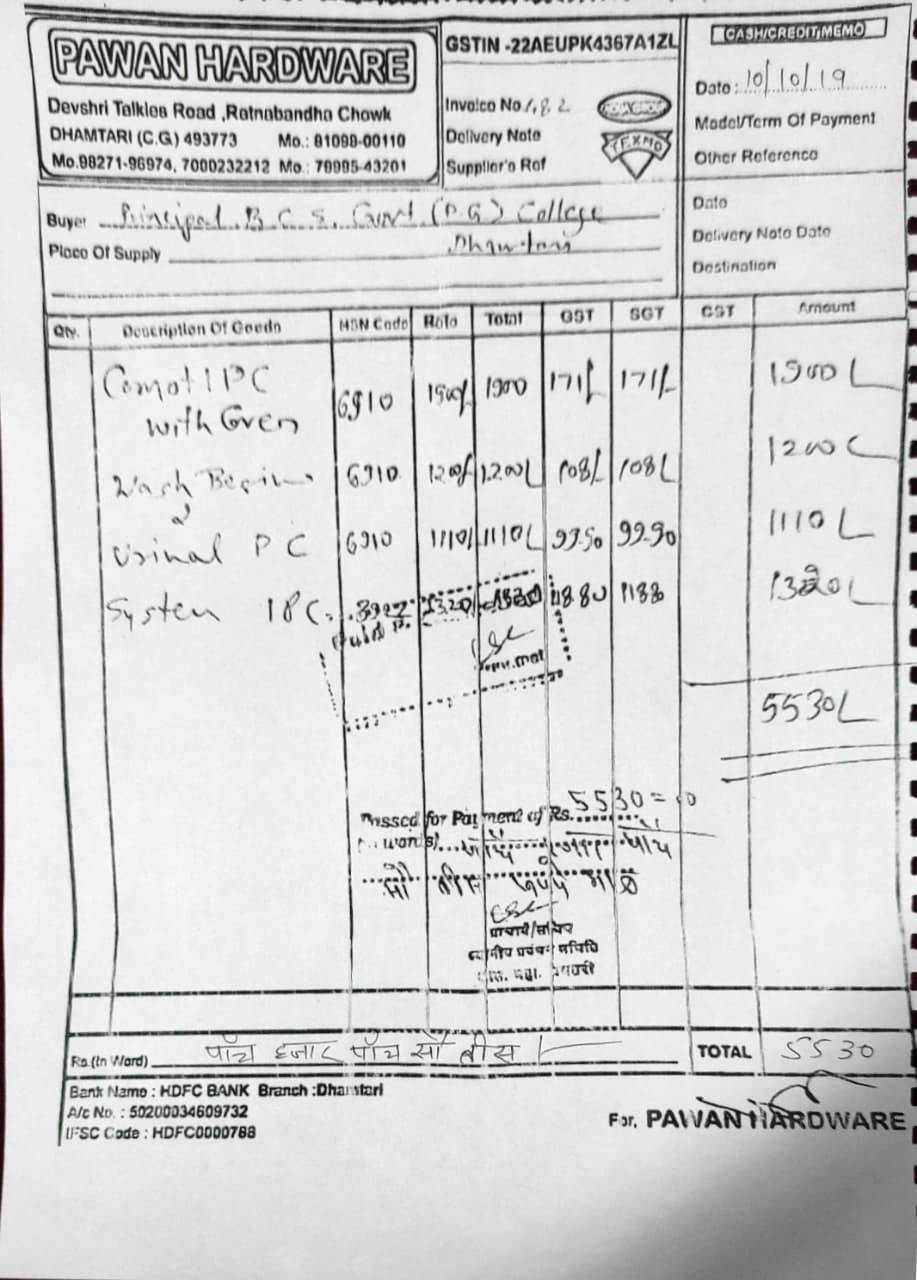 PAWAN HARDWARE
Devshri Talkies Road ,Ratnabandha Chowk
DHAMTARI (C.G.) 493773 Mo.: 81098-00110
Mo.98271-96974, 7000232212 Mo : 79995-43201
GSTIN -22AEUPK4367A1ZL
Invoice No 182
Delivery Note
Supplier's Ref
TEXMO
CASH/CREDIT MEMO
Date : 10/10/19
Model/Term Of Payment
Other Reference
Buyer Principal B.C.S. Govt (P.G) College
Place Of Supply Dhamtari
Date
Delivery Note Date
Destination
Qty. Description Of Goods HSN Code Rate Total GST SGT CGT Amount
Comot 1 PC 6910 1900/ 1900 171/ 171/ 1900/
with Cover
Wash Besin 6910 1200/ 1200/ 108/ 108/ 1200/
Urinal PC 6910 1110/ 1110/ 99.90 99.90 1110/
System 1PC 3922 1320/ 1320 11880 1188 1320/
5530/
Passed for Payment of Rs. 5530=00
words) पाँच हजार पाँच
सौ तीस रूपये मात्र
प्राचार्य/सचिव
स्थानीय प्रबंध समिति
Rs.(In Word) पाँच हजार पाँच सौ तीस TOTAL 5530
Bank Name : HDFC BANK Branch :Dhamtari
A/c No. : 50200034609732
IFSC Code : HDFC0000788
For. PAWAN HARDWARE